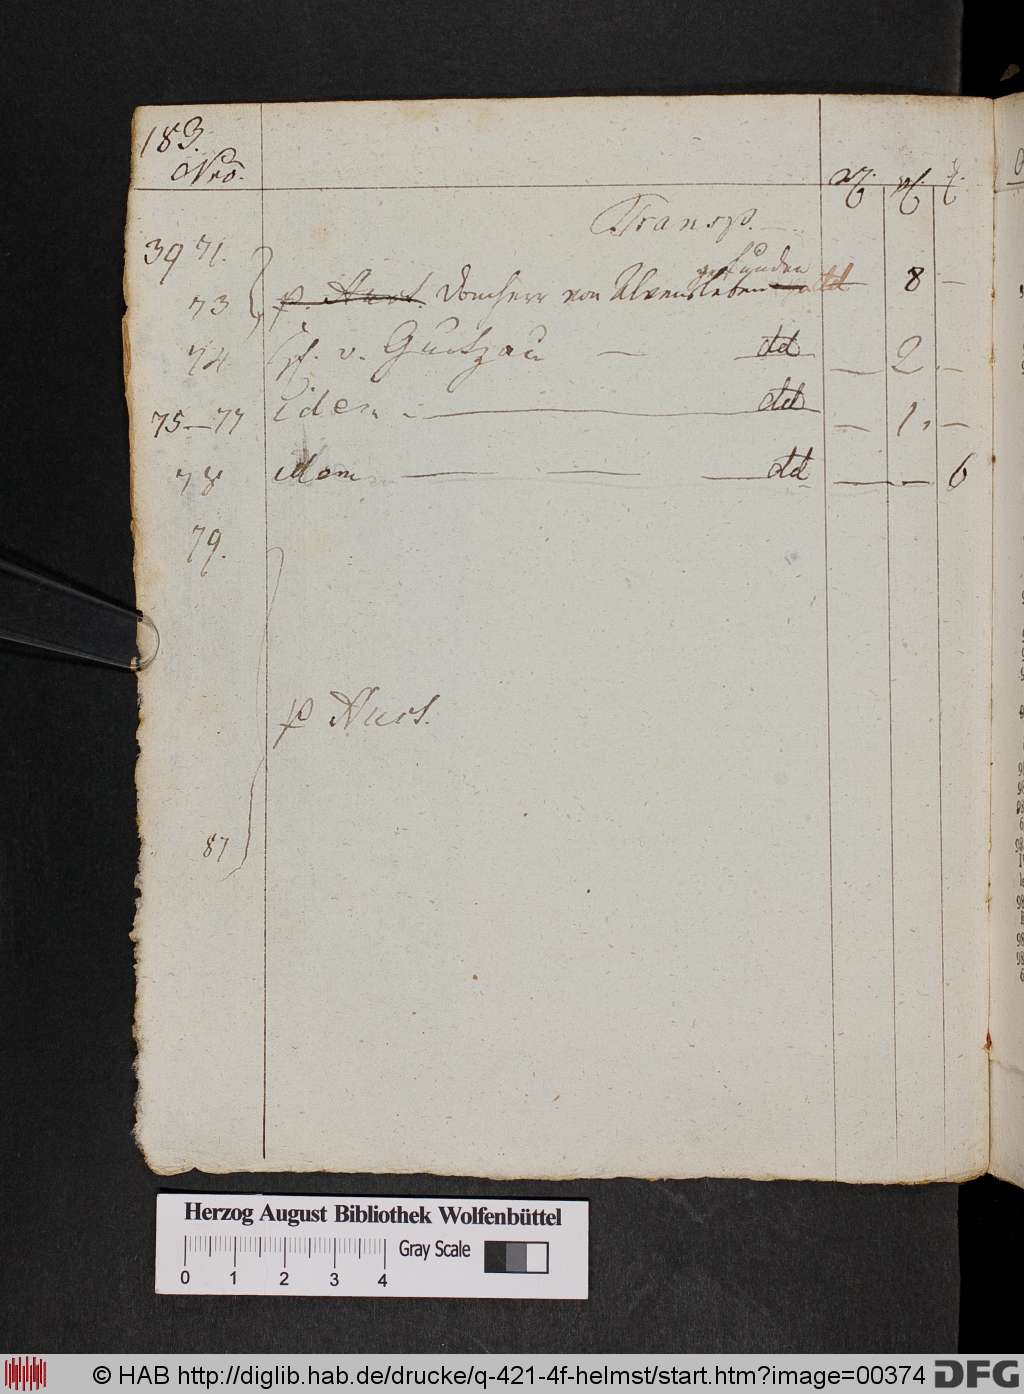 183.
Nro.
Transp.
3971.
gefunden
73 p. Auct. Domherr von Alvensleben dd 8 —
74 v. Gutzau — dd — 2. —
75—77 idem — dd — 1. —
78 idem — — — dd — — 6
79.
p Auct.
87
Herzog August Bibliothek Wolfenbüttel
Gray Scale
0 1 2 3 4
© HAB http://diglib.hab.de/drucke/q-421-4f-helmst/start.htm?image=00374 DFG